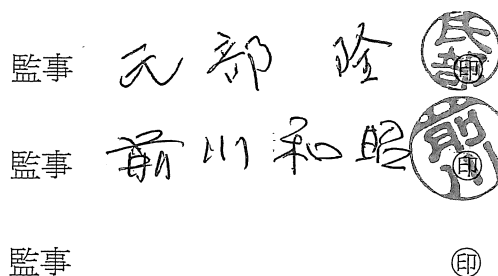 監事 氏部 隆 ㊞
監事 前川和昭 ㊞
監事 ㊞